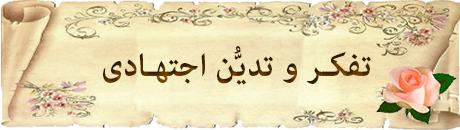 تفکر و تدیُّن اجتهادی